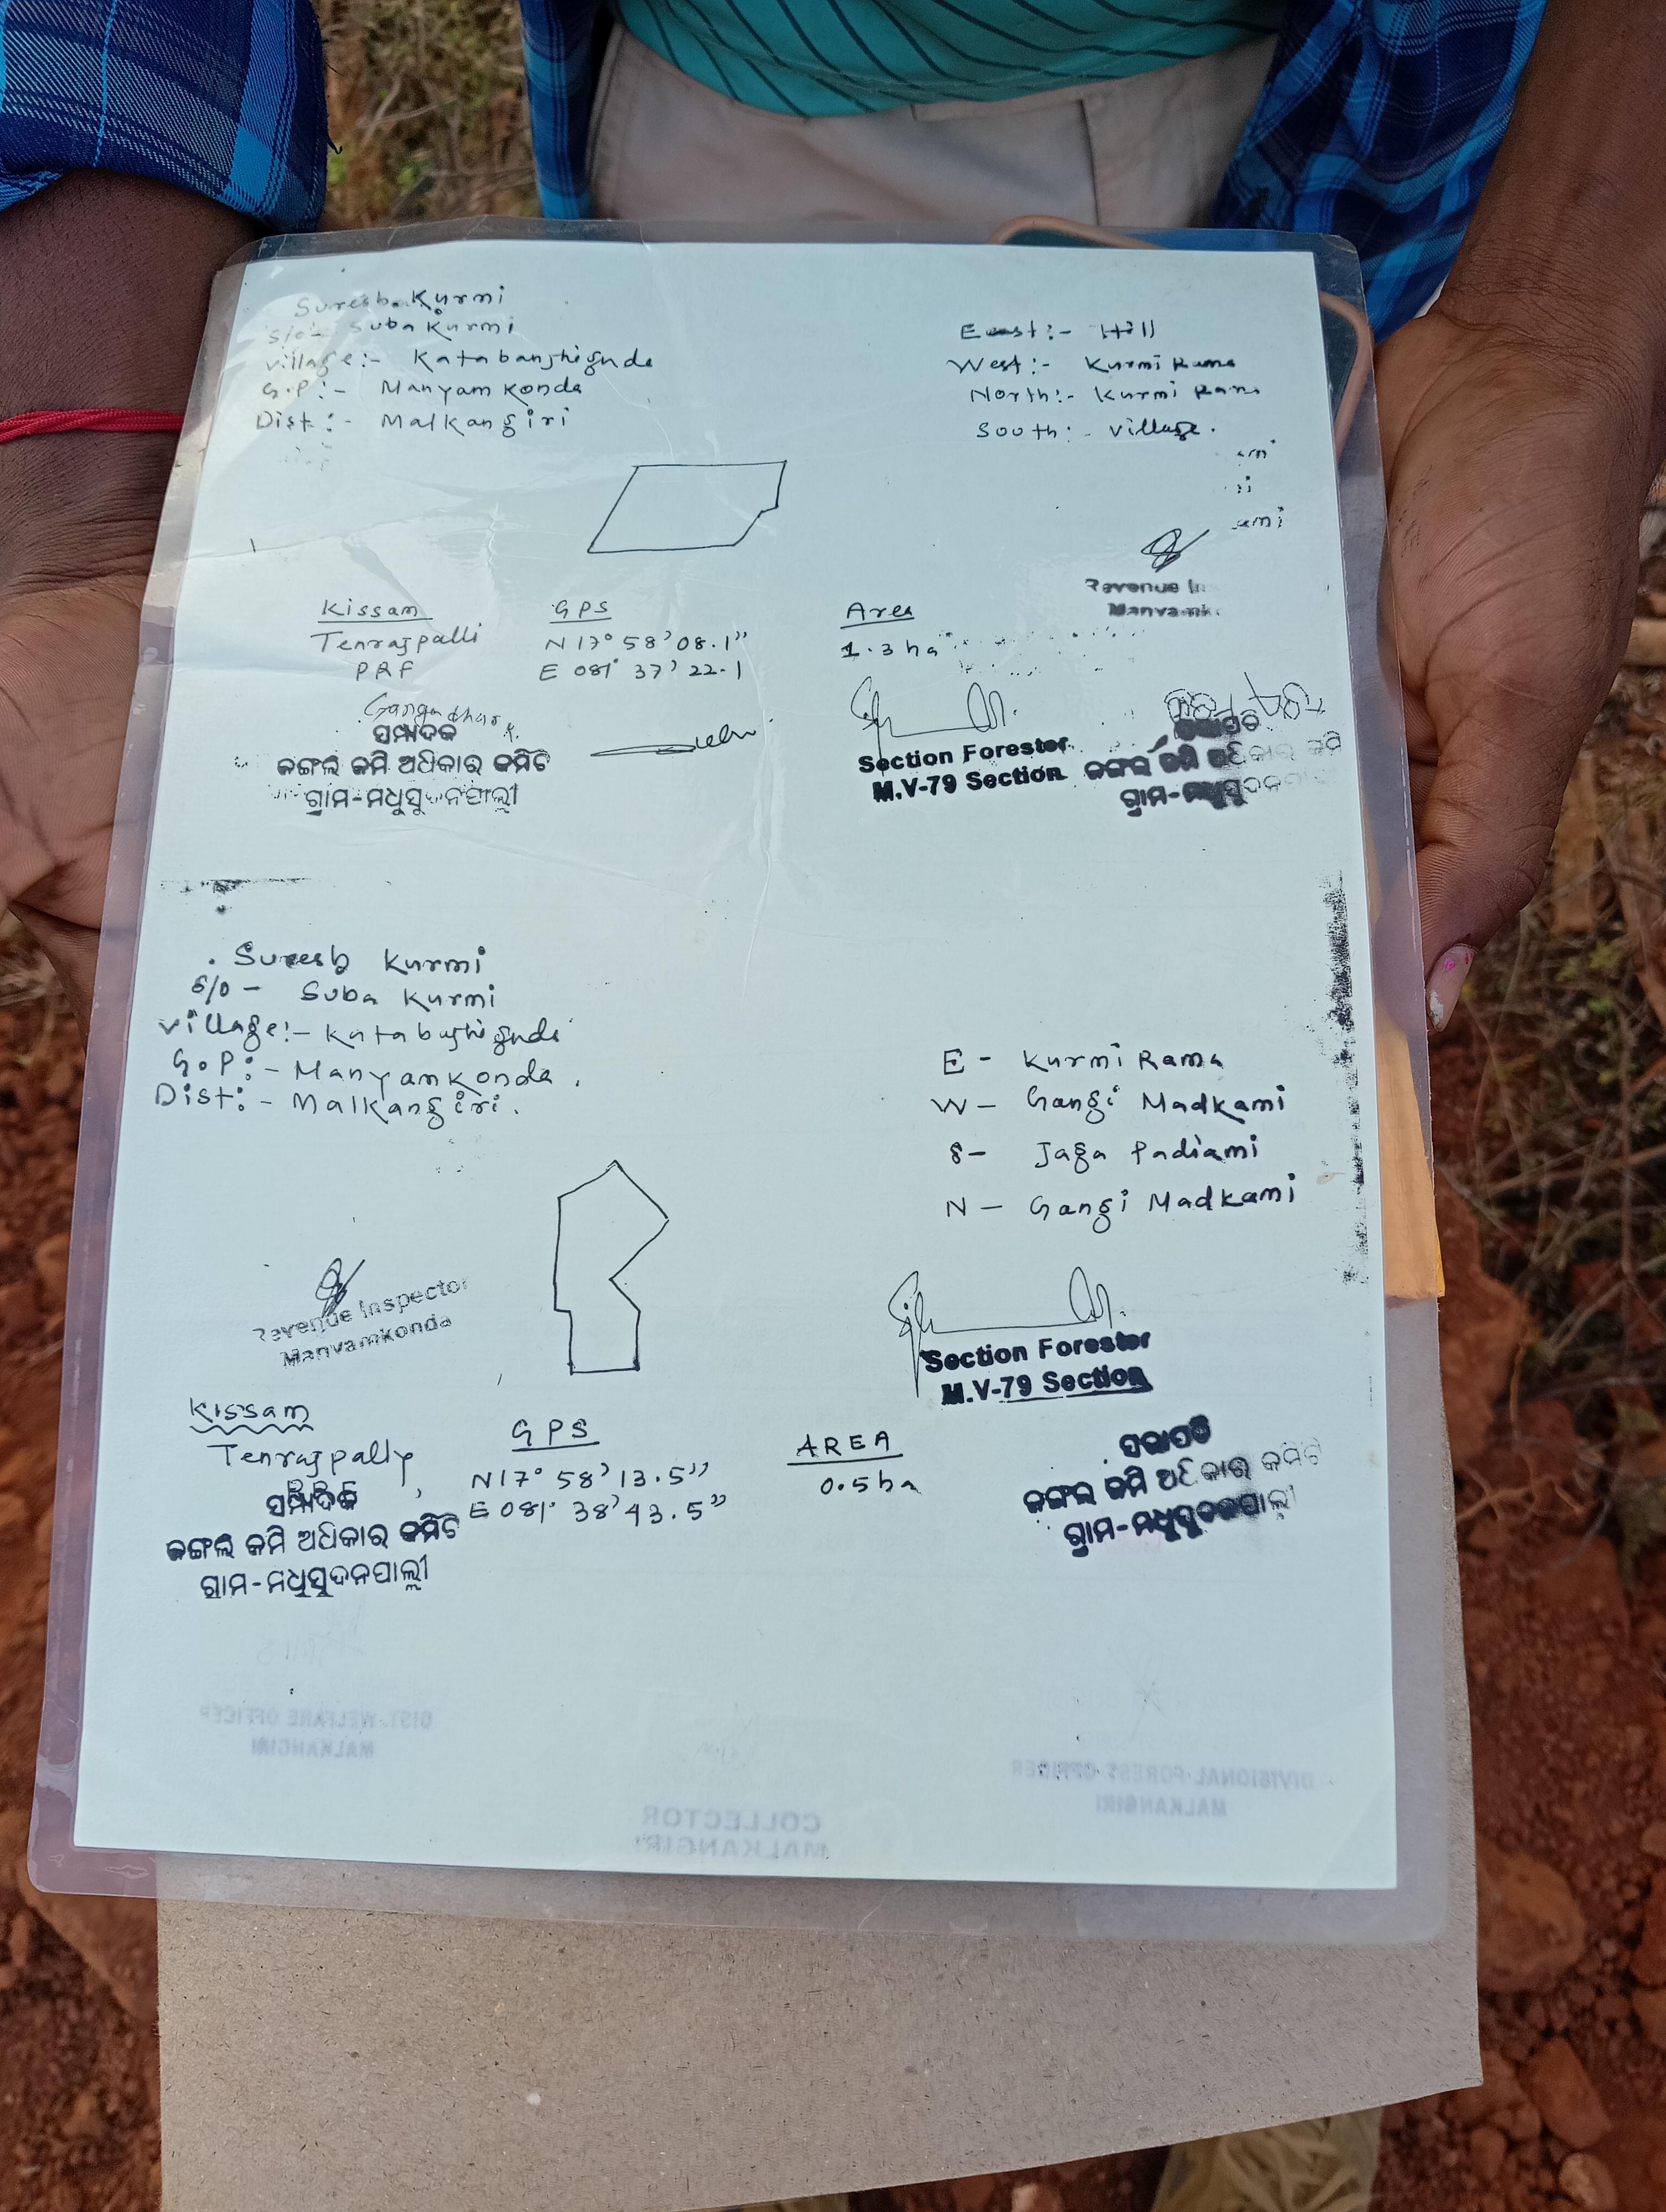 Suresh Kurmi
S/o- Suba Kurmi
Village:- Katabanshiguda
G.P:- Manyam Konda
Dist:- Malkangiri
East:- Hill
West:- Kurmi Rama
North:- Kurmi Rama
South:- Village.
Revenue In
Manyamk
Kissam
Tenrajpalli
PRF
GPS
N 17° 58' 08.1"
E 081° 37' 22.1
Area
1.3 ha
Gangadhar
ସମ୍ପାଦକ
ଜଙ୍ଗଲ ଜମି ଅଧିକାର କମିଟି
ଗ୍ରାମ-ମଧୁସୁଦନପାଲ୍ଲୀ
Section Forester
M.V-79 Section
ସଭାପତି
ଜଙ୍ଗଲ ଜମି ଅଧିକାର କମି
ଗ୍ରାମ-ମଧୁସୁଦନ
Suresh Kurmi
S/o - Suba Kurmi
Village:- Katabashiguda
G.P:- Manyamkonda.
Dist:- Malkangiri.
E - Kurmi Rama
W - Gangi Madkami
S - Jaga Padiami
N - Gangi Madkami
Revenue Inspector
Manyamkonda
Section Forester
M.V-79 Section
Kissam
Tenrajpally
GPS
N17° 58' 13.5"
E 081° 38' 43.5"
AREA
0.5 ha
ସମ୍ପାଦକ
ଜଙ୍ଗଲ ଜମି ଅଧିକାର କମିଟି
ଗ୍ରାମ-ମଧୁସୁଦନପାଲ୍ଲୀ
ସଭାପତି
ଜଙ୍ଗଲ ଜମି ଅଧିକାର କମିଟି
ଗ୍ରାମ-ମଧୁସୁଦନପାଲ୍ଲୀ
DIST. WELFARE OFFICER
MALKANGIRI
DIVISIONAL FOREST OFFICER
MALKANGIRI
COLLECTOR
MALKANGIRI